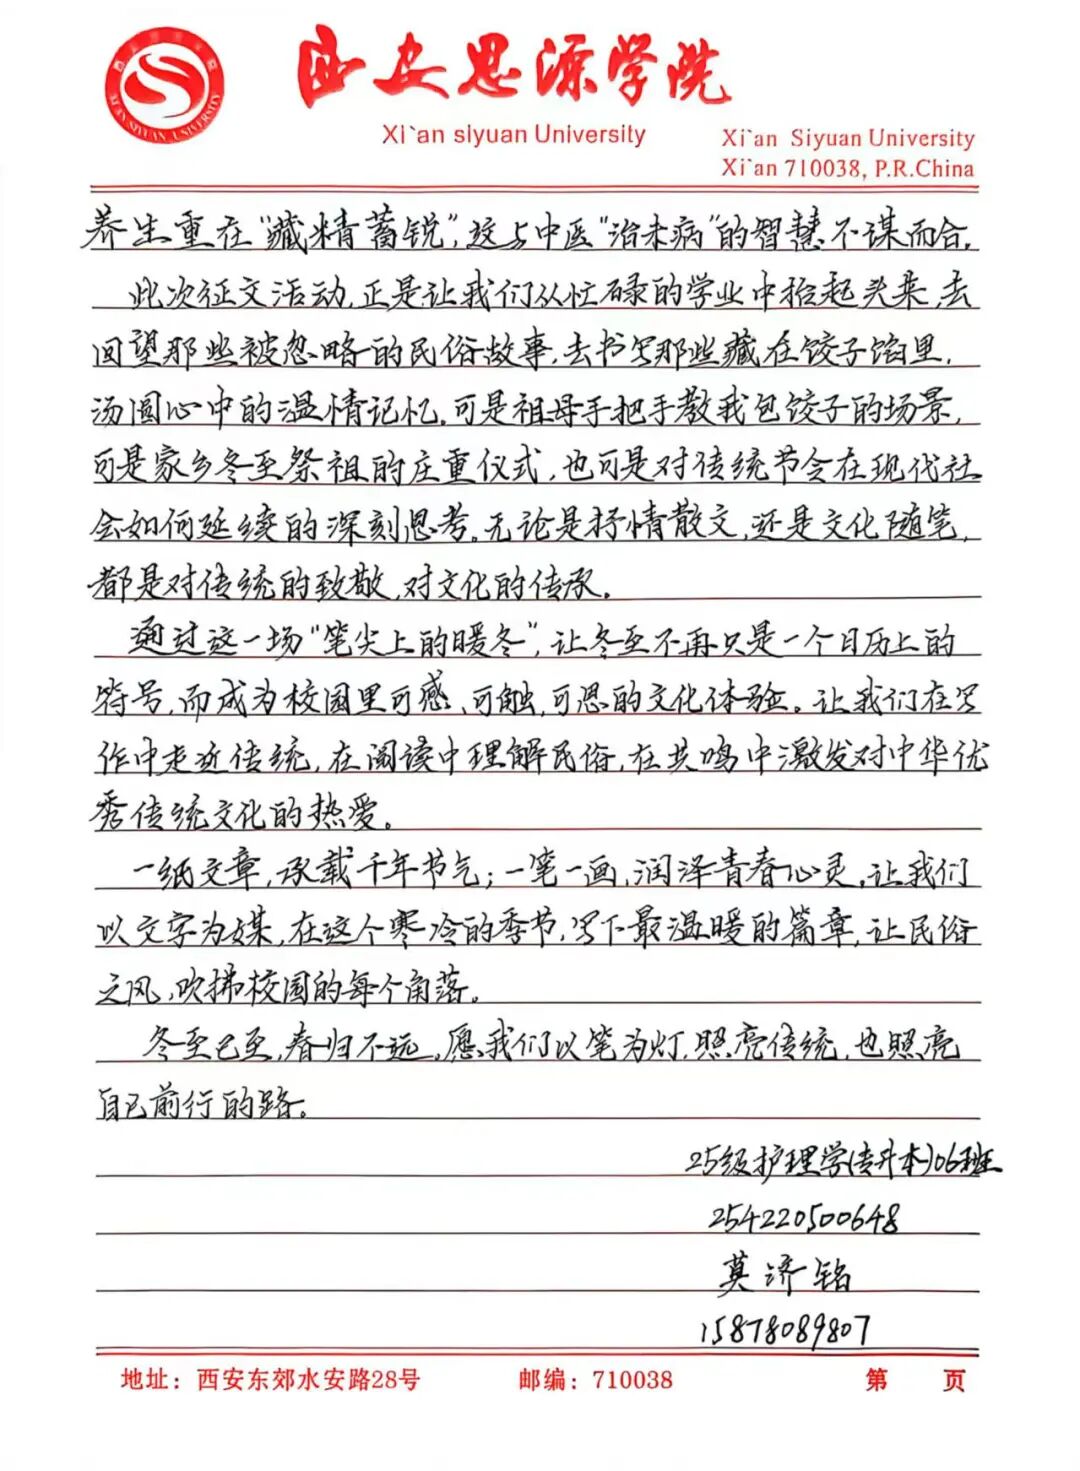 西安思源学院
Xi`an siyuan University
Xi`an Siyuan University
Xi`an 710038, P.R.China
XI'AN SIYUAN UNIVERSITY
养生重在“藏精蓄锐”,这与中医“治未病”的智慧不谋而合。
此次征文活动,正是让我们从忙碌的学业中抬起头来,去
回望那些被忽略的民俗故事,去书写那些藏在饺子馅里,
汤圆心中的温情记忆。可是祖母手把手教我包饺子的场景,
可是家乡冬至祭祖的庄重仪式,也可是对传统节令在现代社
会如何延续的深刻思考。无论是抒情散文,还是文化随笔,
都是对传统的致敬,对文化的传承。
通过这一场“笔尖上的暖冬”,让冬至不再只是一个日历上的
符号,而成为校园里可感、可触,可思的文化体验。让我们在写
作中走近传统,在阅读中理解民俗,在共鸣中激发对中华优
秀传统文化的热爱。
一纸文章,承载千年节气;一笔一画,润泽青春心灵。让我们
以文字为媒,在这个寒冷的季节,写下最温暖的篇章,让民俗
之风,吹拂校园的每个角落。
冬至已至,春归不远。愿我们以笔为灯,照亮传统,也照亮
自己前行的路。
25级护理学(专升本)06班
254220500648
莫济铭
15878089807
地址：西安东郊水安路28号 邮编：710038 第 页